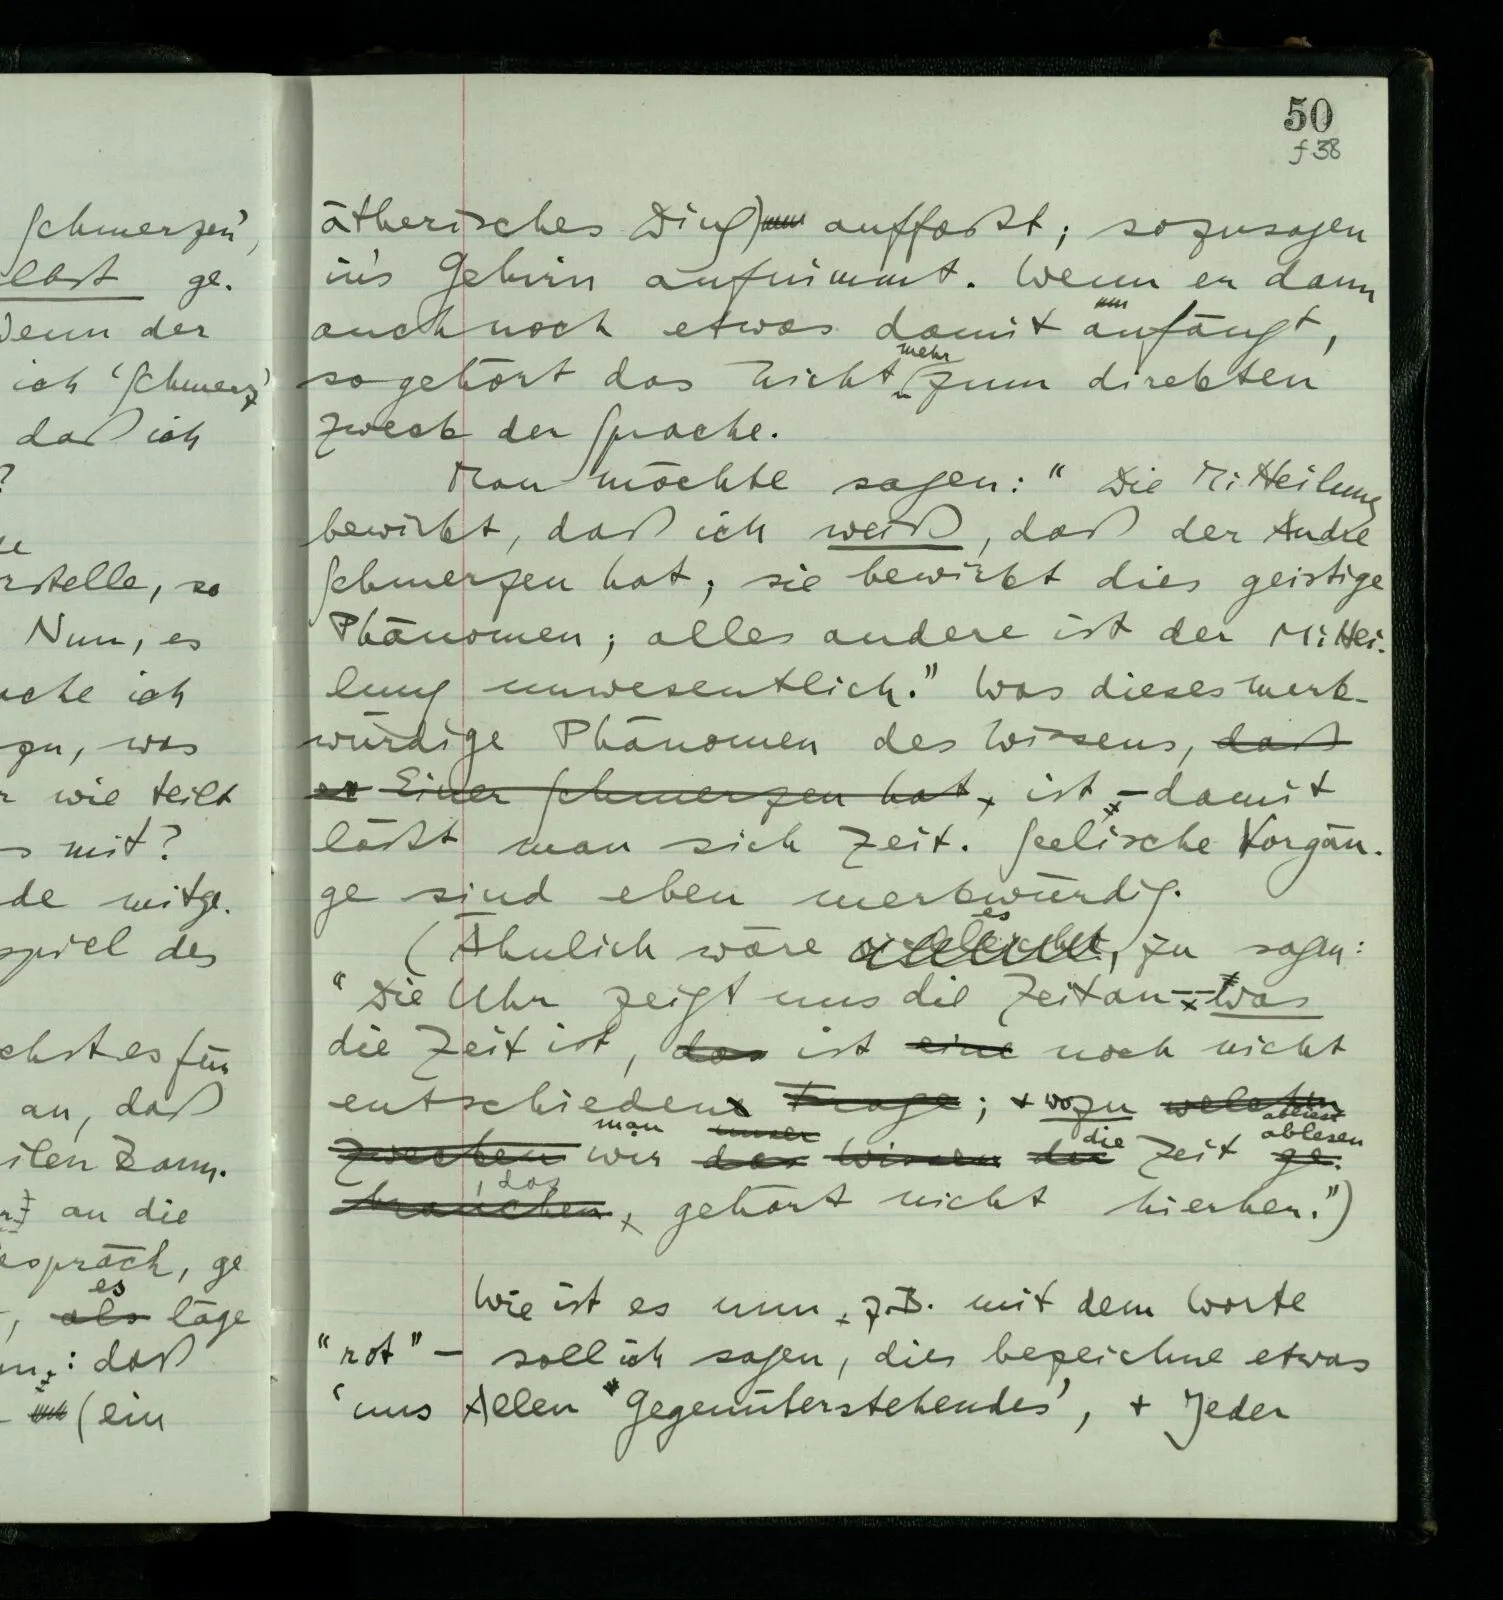 Schmerzen',
elbst ge-
Wenn der
ich 'Schmerz'
daß ich
?
rstelle, so
Nun, es
ache ich
zu, was
wie teilt
s mit?
de mitge-
spiel des
chst es für
an, daß
ilen kann.
an die
espräch, ge
es
, als läge
: daß
(ein
50
f 38
ätherisches Ding) auffaßt; sozusagen
in's Gehirn aufnimmt. Wenn er dann
auch noch etwas damit anfängt,
mehr
so gehört das nicht zum direkten
Zweck der Sprache.
Man möchte sagen: "Die Mitteilung
bewirkt, daß ich weiß, daß der Andre
Schmerzen hat; sie bewirkt dies geistige
Phänomen; alles andere ist der Mittei-
lung unwesentlich." Was dieses merk-
würdige Phänomen des Wissens, daß
er Einer Schmerzen hat, ist – damit
läßt man sich Zeit. Seelische Vorgän-
ge sind eben merkwürdig.
es
(Ähnlich wäre vielleicht, zu sagen:
"Die Uhr zeigt uns die Zeit an – was
die Zeit ist, das ist eine noch nicht
entschiedene Frage; + wozu welchen
man unser die abliest ablesen
Zwecken wir das Wissen der Zeit ge-
, das
brauchen, gehört nicht hierher.")
Wie ist es nun, z.B. mit dem Worte
"rot" – soll ich sagen, dies bezeichne etwas
'uns Allen Gegenüberstehendes', + Jeder